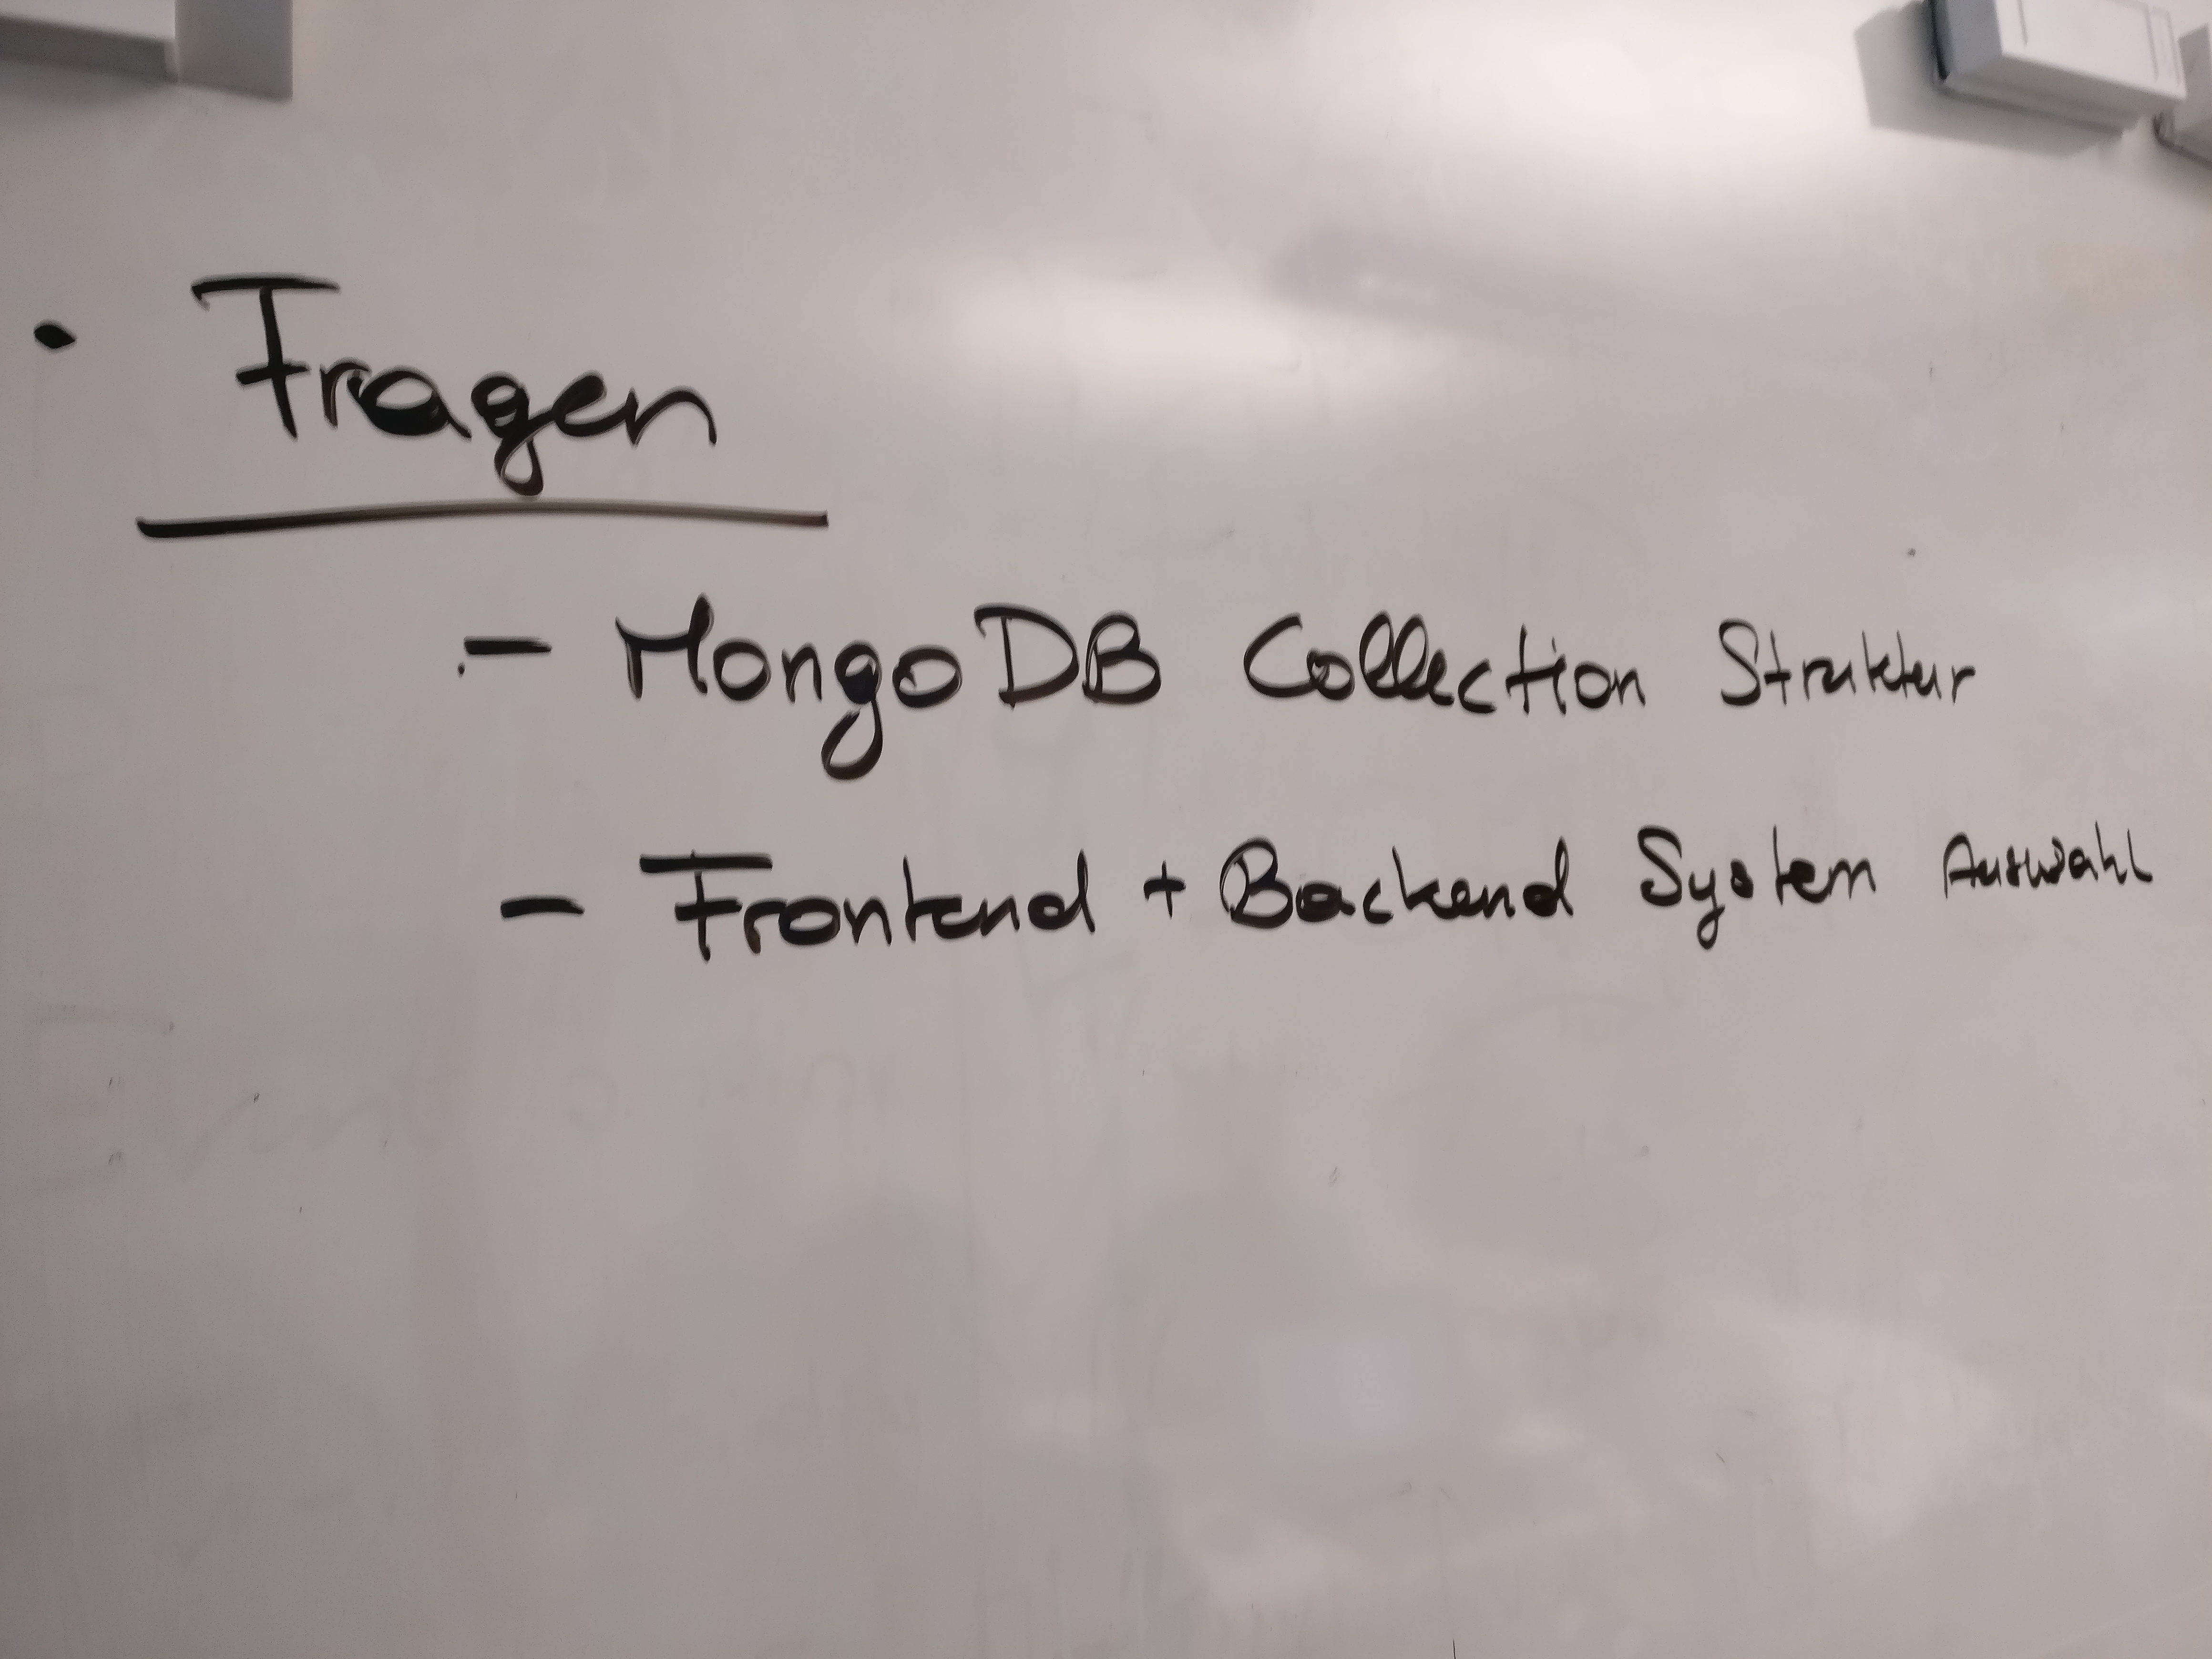 • Fragen
- MongoDB Collection Struktur
- Frontend + Backend System Auswahl